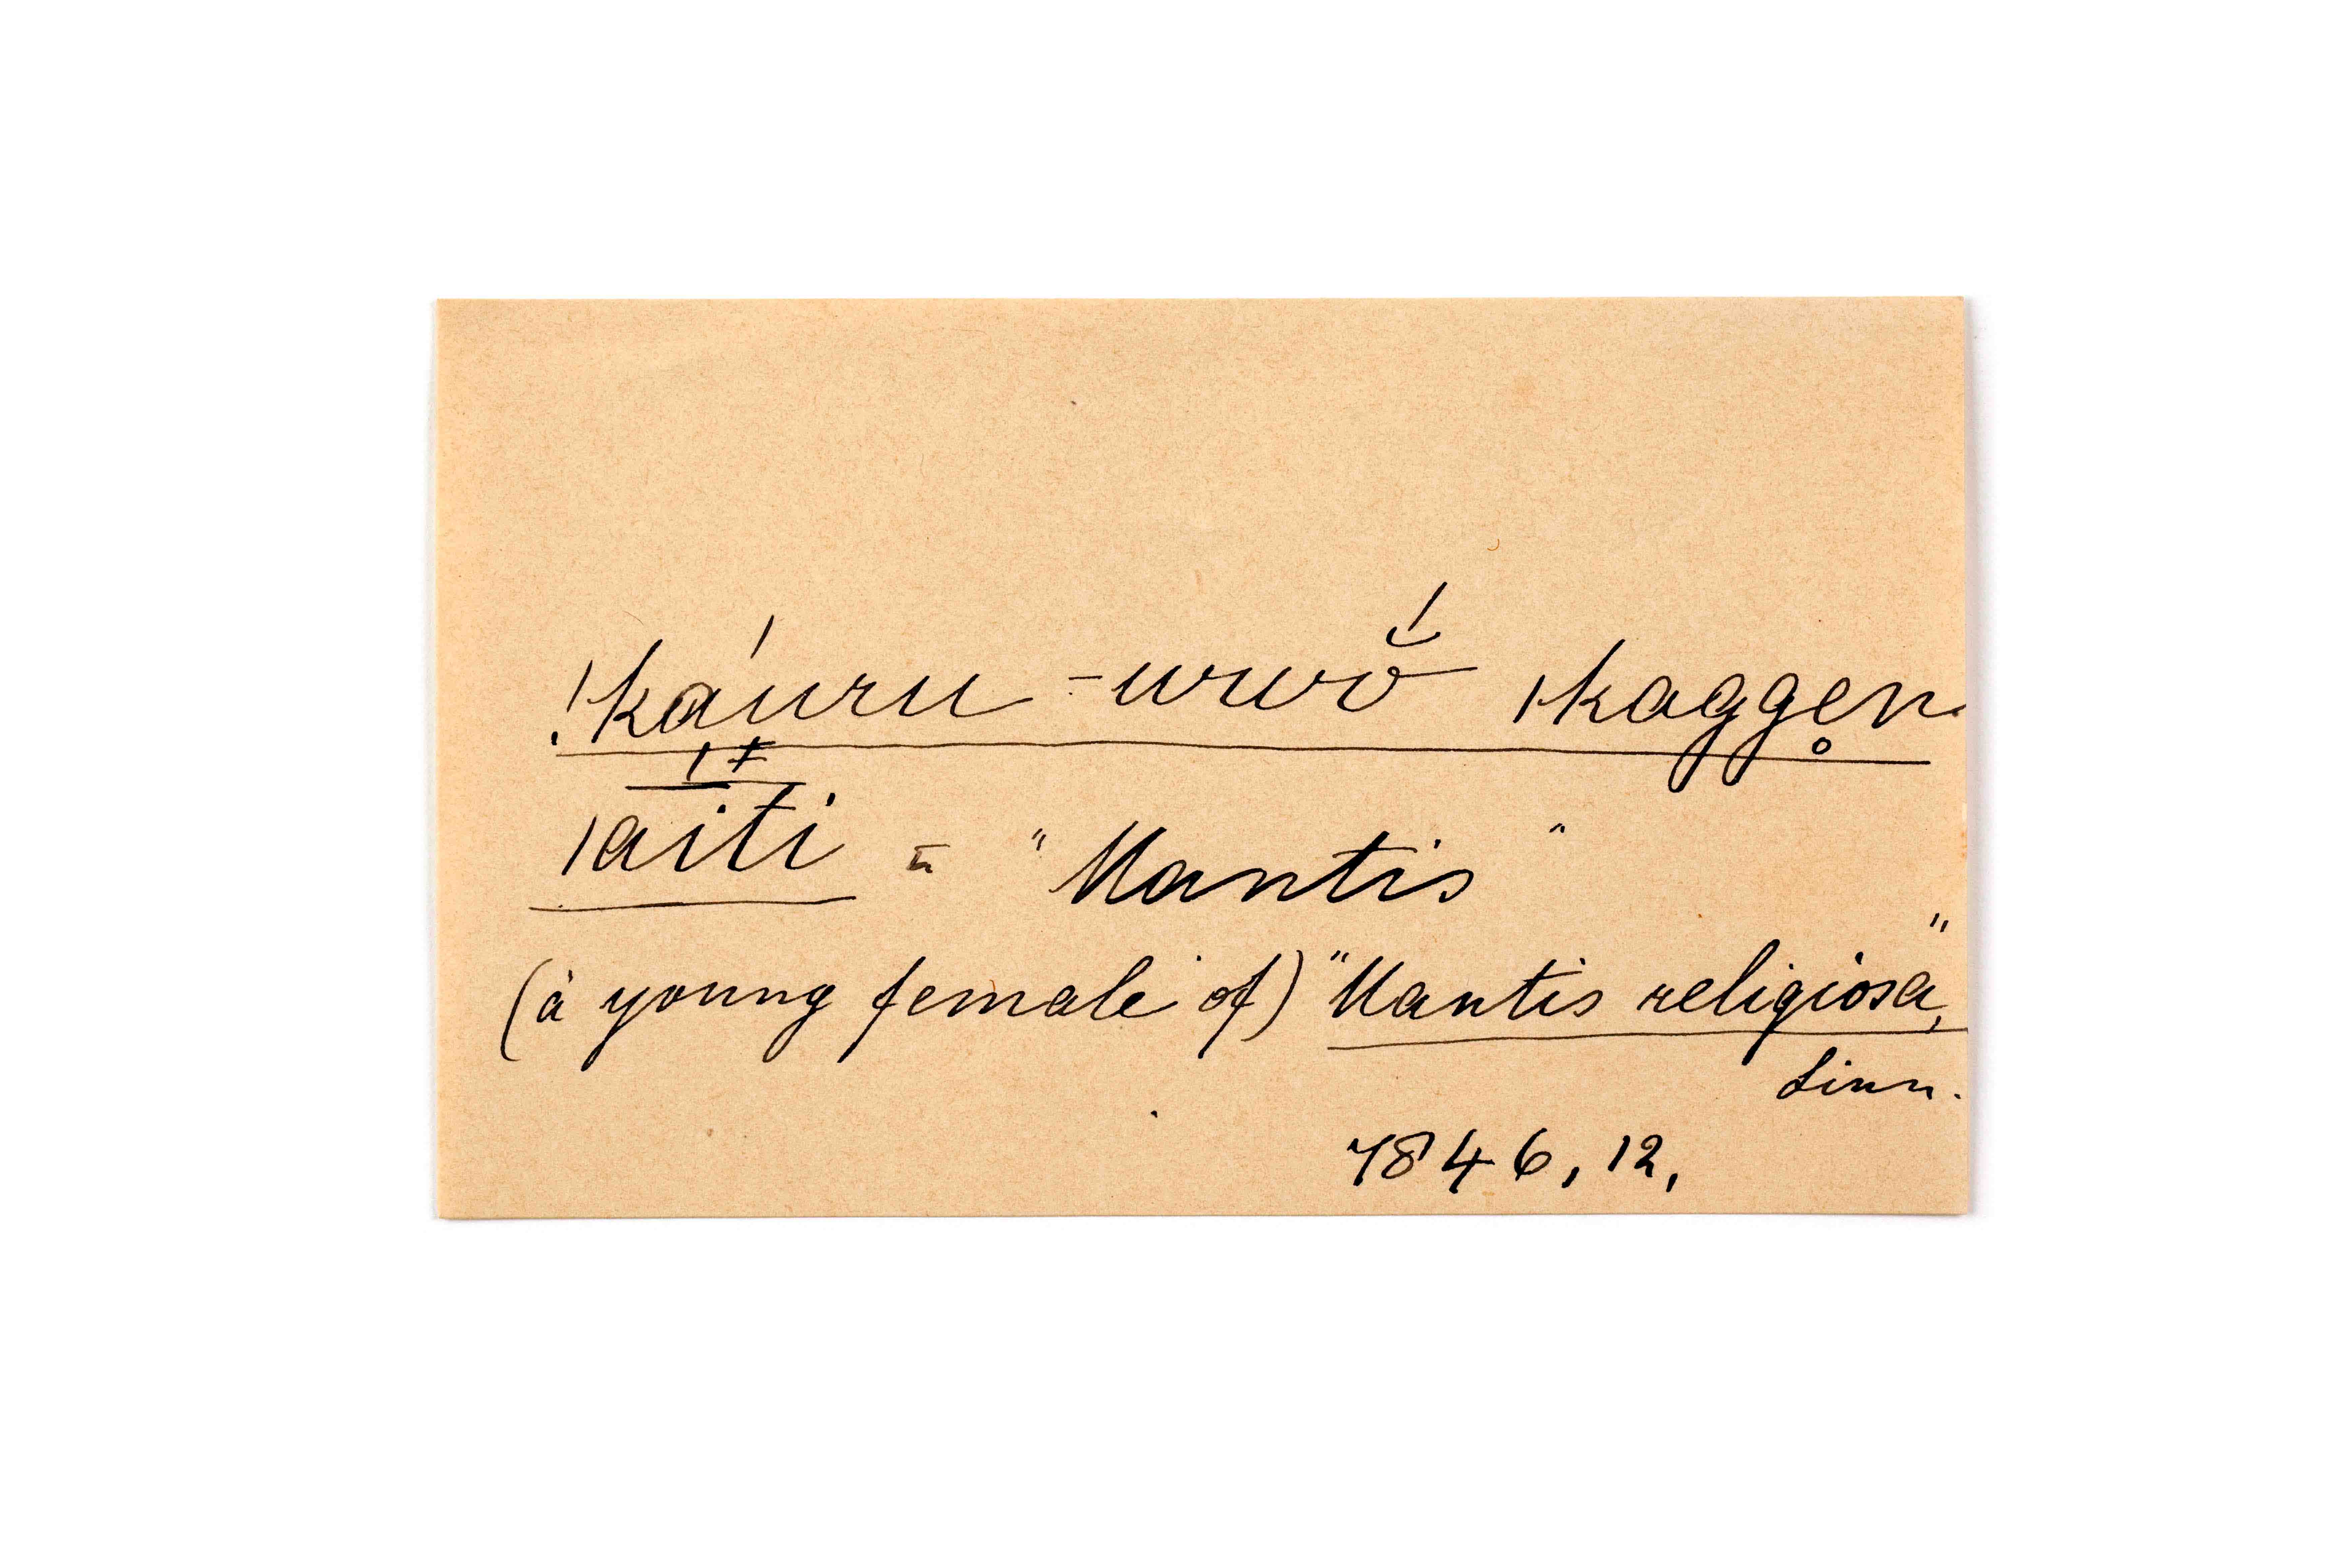 !káuru-urwŏ́ ǀkaggen̥
ǀaiti = "Mantis"
(à young female of) "Mantis religiosa",
Linn.
7846, 12,